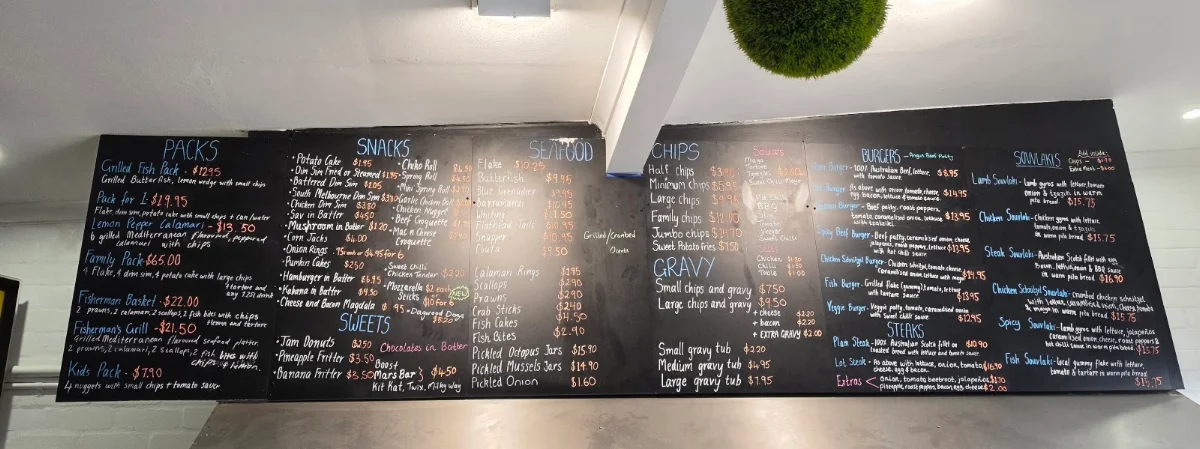 PACKS
Grilled Fish Pack - $12.95
Grilled Butterfish, lemon wedge with small chips
Pack for 1 - $19.95
Flake, dim sim, potato cake with small chips + can/water
Lemon Pepper Calamari - $13.50
6 grilled Mediterranean flavoured, peppered
calamari with chips
Family Pack $65.00
4 Flake, 4 dim sim, 4 potato cake with large chips
+ tartare and
any 1.25l drink
Fisherman Basket - $22.00
2 prawns, 2 calamari, 2 scallops, 2 fish bits with chips
lemon and tartare
Fisherman's Grill - $21.50
Grilled Mediterranean flavoured seafood platter
2 prawns, 2 calamari, 2 scallops, 2 fish bites with
Kids Pack - $7.90
4 nuggets with small chips + tomato sauce
SNACKS
Potato Cake $1.95
Dim Sim Fried or Steamed $1.95
Battered Dim Sim $2.05
South Melbourne Dim Sim
Chicken Dim Sim
Sav in Batter $4.50
Mushroom in Batter $1.20
Corn Jacks $4.00
Onion Rings
Pumkin Cakes $2.50
Hamburger in Batter $4.95
Banana in Batter $4.50
Cheese and Bacon Magdala
Chiko Roll
Spring Roll
Mini Spring Roll
Garlic Chicken Ball
Chicken Nugget
Beef Croquette
Mac n Cheese
Croquette
Sweet chilli
Chicken Tender
Mozzarella $2 each
Sticks $10 for 6
NEW
Dagwood Dogs
$5.20
SWEETS
Jam Donuts $2.50
Pineapple Fritter $3.50
Banana Fritter $3.50
Chocolates in Batter
Boost
Mars Bar } $4.50
Kit Kat, Twix, Milky Way
SEAFOOD
Flake $10.25
Butterfish $9.95
Blue Grenadier
Barramundi
Whiting
Flathead Tails
Snapper
Grilled/Crumbed
Calamari Rings $1.95
Scallops $2.90
Prawns $2.40
Crab Sticks $2.40
Fish Cakes $4.50
Fish Bites $2.90
Pickled Octopus Jars $15.90
Pickled Mussels Jars $14.90
Pickled Onion $1.60
CHIPS
Half chips
Minimum chips
Large chips
Family chips
Jumbo chips
Sweet Potato fries
Sauces
Mayo
Tartare
BBQ
Vinegar
Chicken
Chilli
GRAVY
Small chips and gravy $7.50
Large chips and gravy $9.50
+ cheese $2.20
+ bacon $2.20
+ EXTRA GRAVY $2.00
Small gravy tub $2.20
Medium gravy tub $4.95
Large gravy tub $7.95
BURGERS - Angus Beef Patty
Burger - 100% Australian Beef, lettuce, $8.95
with tomato sauce
Burger - As above with onion, tomato, cheese, $14.95
egg, bacon, lettuce & tomato sauce
Burger - Beef patty, roast peppers, $13.95
tomato, caramelised onion, lettuce
Spicy Beef Burger - Beef patty, caramelised onion, cheese,
jalapeños, roast peppers, lettuce $13.95
with hot chilli sauce
Chicken Schnitzel Burger - Schnitzel, tomato, cheese,
caramelised onion with mayo $14.95
Fish Burger - Grilled flake (gummy), tomato, lettuce
with tartare sauce $13.95
Veggie Burger - Veggie patty, tomato, caramelised onion
with sweet chilli sauce $12.95
STEAKS
Plain Steak - 100% Australian Scotch fillet on $10.90
toasted bread with lettuce and tomato sauce
Lot Steak - As above with lettuce, onion, tomato $16.90
cheese, egg & bacon.
Extras < Onion, tomato, beetroot, jalapeños
pineapple, roast peppers, bacon, egg, cheese $2.00
SOUVLAKIS
Add inside:
Lamb Souvlaki - Lamb gyros with lettuce, tomato,
onion & tzatziki in warm
pita bread $15.75
Chicken Souvlaki - Chicken gyros with lettuce,
tomato, onion & tzatziki
in warm pita bread $15.75
Steak Souvlaki - Australian Scotch fillet with egg
bacon, lettuce, onion & BBQ sauce
in warm pita bread $16.90
Chicken Schnitzel Souvlaki - crumbed chicken schnitzel
Spicy Souvlaki - lamb gyros with lettuce, jalapeños
caramelised onion, cheese, roast peppers &
hot chilli sauce in warm pita bread $15.75
Fish Souvlaki - local gummy flake with lettuce,
tomato & tartare in warm pita bread
$15.75